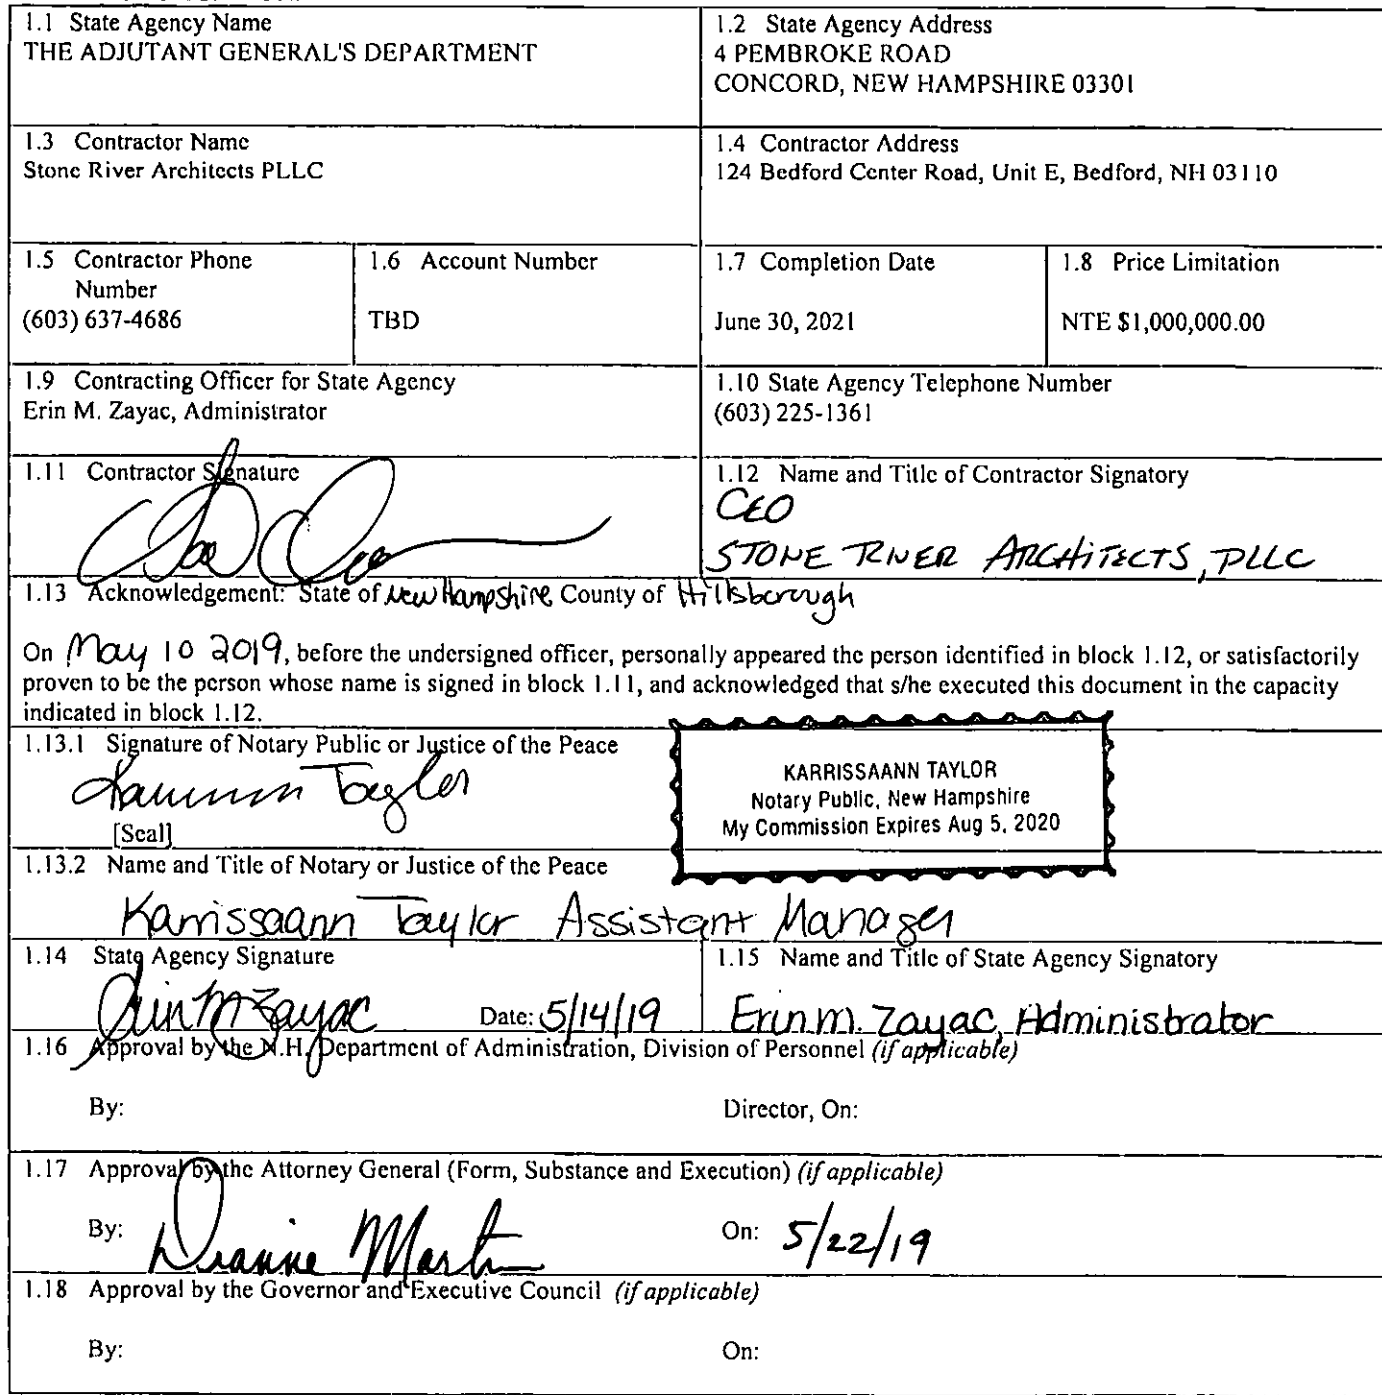 1.1 State Agency Name
THE ADJUTANT GENERAL'S DEPARTMENT
1.2 State Agency Address
4 PEMBROKE ROAD
CONCORD, NEW HAMPSHIRE 03301
1.3 Contractor Name
Stone River Architects PLLC
1.4 Contractor Address
124 Bedford Center Road, Unit E, Bedford, NH 03110
1.5 Contractor Phone
Number
(603) 637-4686
1.6 Account Number
TBD
1.7 Completion Date
June 30, 2021
1.8 Price Limitation
NTE $1,000,000.00
1.9 Contracting Officer for State Agency
Erin M. Zayac, Administrator
1.10 State Agency Telephone Number
(603) 225-1361
1.11 Contractor Signature
1.12 Name and Title of Contractor Signatory
CEO
STONE RIVER ARCHITECTS, PLLC
1.13 Acknowledgement: State of New Hampshire County of Hillsborough
On May 10 2019, before the undersigned officer, personally appeared the person identified in block 1.12, or satisfactorily
proven to be the person whose name is signed in block 1.11, and acknowledged that s/he executed this document in the capacity
indicated in block 1.12.
1.13.1 Signature of Notary Public or Justice of the Peace
[Seal]
KARRISSAANN TAYLOR
Notary Public, New Hampshire
My Commission Expires Aug 5, 2020
1.13.2 Name and Title of Notary or Justice of the Peace
Karrissaann Taylor Assistant Manager
1.14 State Agency Signature
Erin M Zayac Date: 5/14/19
1.15 Name and Title of State Agency Signatory
Erin M. Zayac, Administrator
1.16 Approval by the N.H. Department of Administration, Division of Personnel (if applicable)
By: Director, On:
1.17 Approval by the Attorney General (Form, Substance and Execution) (if applicable)
By: Dianne Martin On: 5/22/19
1.18 Approval by the Governor and Executive Council (if applicable)
By: On: